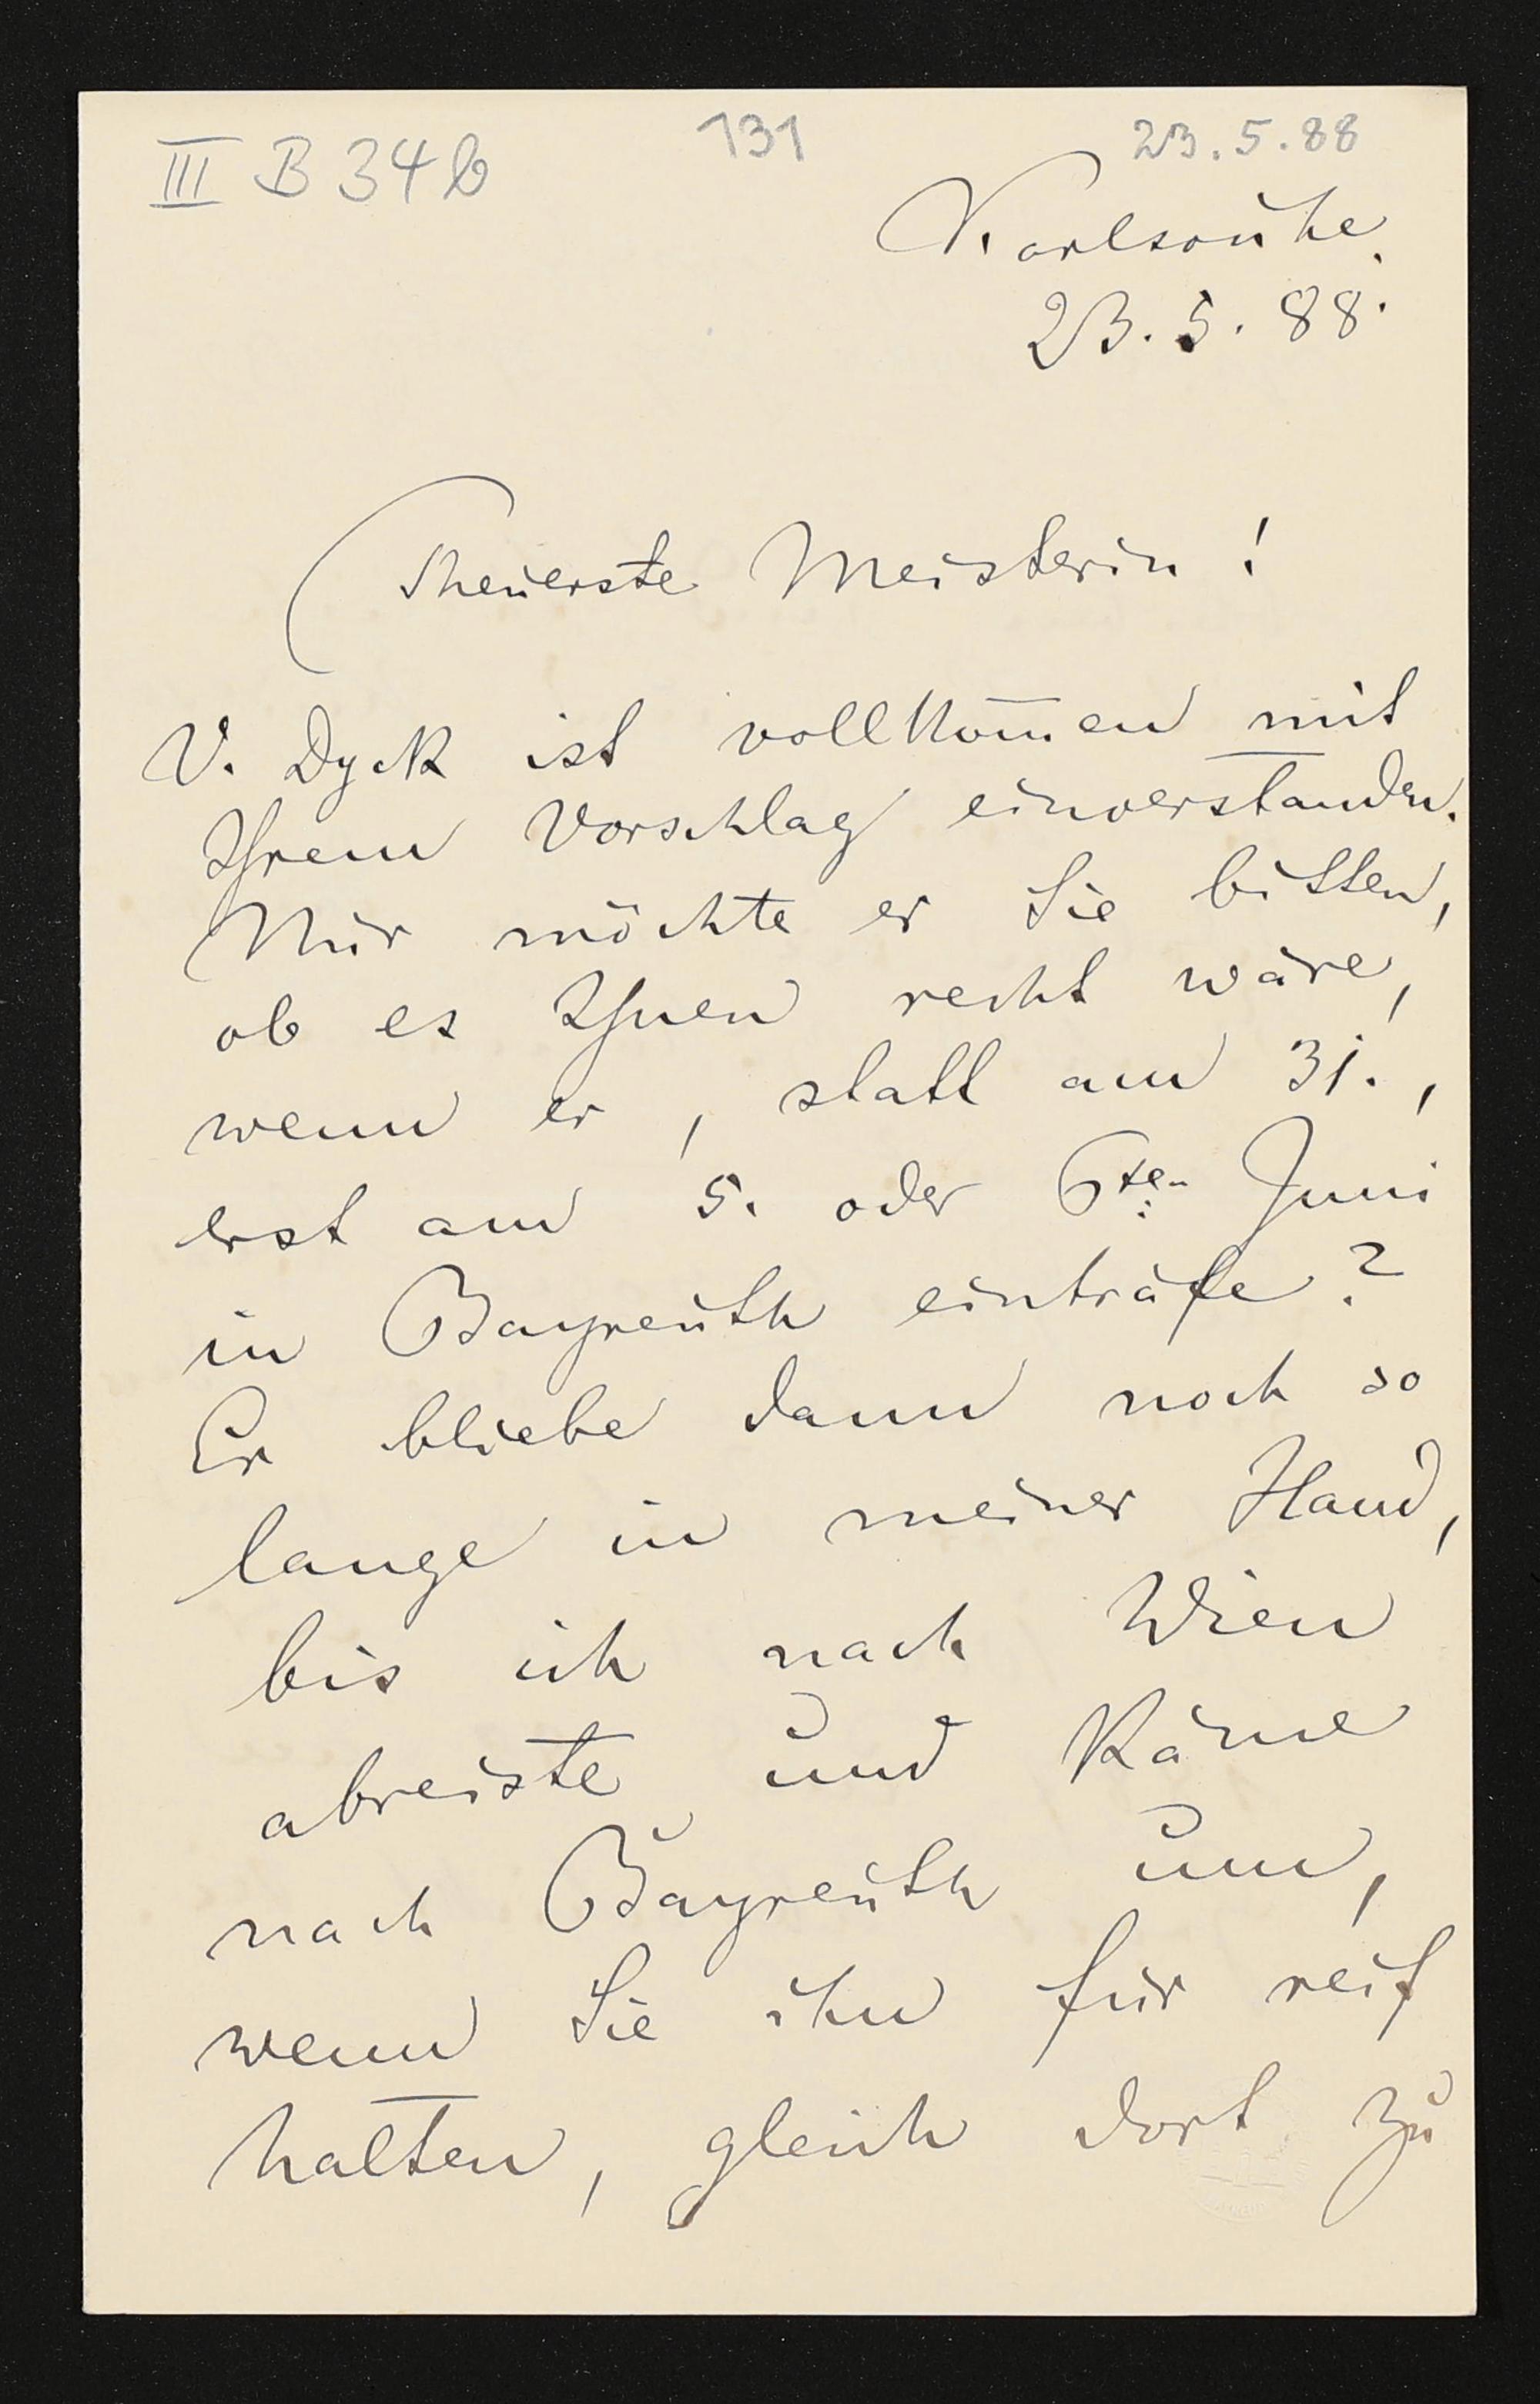 III B 34b 131 23.5.88
Karlsruhe.
23. 5. 88.
Theuerste Meisterin!
V. Dyck ist vollkom̅en mit
Ihrem Vorschlag einverstanden.
Nur möchte er Sie bitten,
ob es Ihnen recht wäre,
wenn er, statt am 31.,
erst am 5. oder 6ten Juni
in Bayreuth einträfe?
Er bliebe dann noch so
lange in meiner Hand,
bis ich nach Wien
abreiste und käme
nach Bayreuth um,
wenn Sie ihn für reif
halten, gleich dort zu